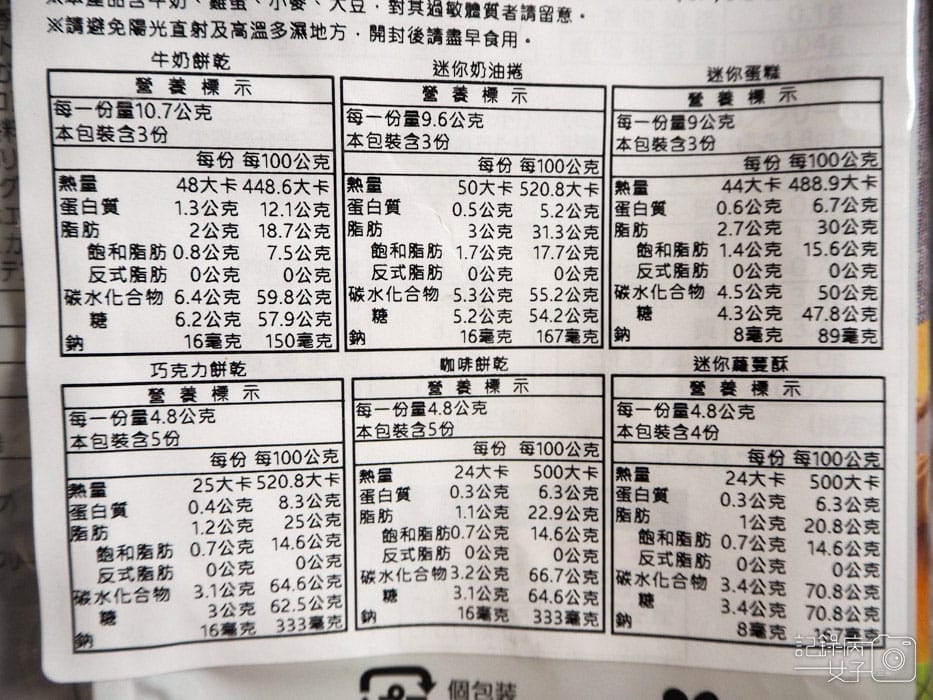 ※本產品含牛奶、雞蛋、小麥、大豆，對其過敏體質者請留意。
※請避免陽光直射及高溫多濕地方，開封後請盡早食用。
牛奶餅乾
營養標示
每一份量10.7公克
本包裝含3份
每份 每100公克
熱量 48大卡 448.6大卡
蛋白質 1.3公克 12.1公克
脂肪 2公克 18.7公克
飽和脂肪 0.8公克 7.5公克
反式脂肪 0公克 0公克
碳水化合物 6.4公克 59.8公克
糖 6.2公克 57.9公克
鈉 16毫克 150毫克
迷你奶油捲
營養標示
每一份量9.6公克
本包裝含3份
每份 每100公克
熱量 50大卡 520.8大卡
蛋白質 0.5公克 5.2公克
脂肪 3公克 31.3公克
飽和脂肪 1.7公克 17.7公克
反式脂肪 0公克 0公克
碳水化合物 5.3公克 55.2公克
糖 5.2公克 54.2公克
鈉 16毫克 167毫克
迷你蛋糕
營養標示
每一份量9公克
本包裝含3份
每份 每100公克
熱量 44大卡 488.9大卡
蛋白質 0.6公克 6.7公克
脂肪 2.7公克 30公克
飽和脂肪 1.4公克 15.6公克
反式脂肪 0公克 0公克
碳水化合物 4.5公克 50公克
糖 4.3公克 47.8公克
鈉 8毫克 89毫克
巧克力餅乾
營養標示
每一份量4.8公克
本包裝含5份
每份 每100公克
熱量 25大卡 520.8大卡
蛋白質 0.4公克 8.3公克
脂肪 1.2公克 25公克
飽和脂肪 0.7公克 14.6公克
反式脂肪 0公克 0公克
碳水化合物 3.1公克 64.6公克
糖 3公克 62.5公克
鈉 16毫克 333毫克
咖啡餅乾
營養標示
每一份量4.8公克
本包裝含5份
每份 每100公克
熱量 24大卡 500大卡
蛋白質 0.3公克 6.3公克
脂肪 1.1公克 22.9公克
飽和脂肪 0.7公克 14.6公克
反式脂肪 0公克 0公克
碳水化合物 3.2公克 66.7公克
糖 3.1公克 64.6公克
鈉 16毫克 333毫克
迷你蘿蔓酥
營養標示
每一份量4.8公克
本包裝含4份
每份 每100公克
熱量 24大卡 500大卡
蛋白質 0.3公克 6.3公克
脂肪 1公克 20.8公克
飽和脂肪 0.7公克 14.6公克
反式脂肪 0公克 0公克
碳水化合物 3.4公克 70.8公克
糖 3.4公克 70.8公克
鈉 8毫克 167毫克
個包装
記錄病
女子